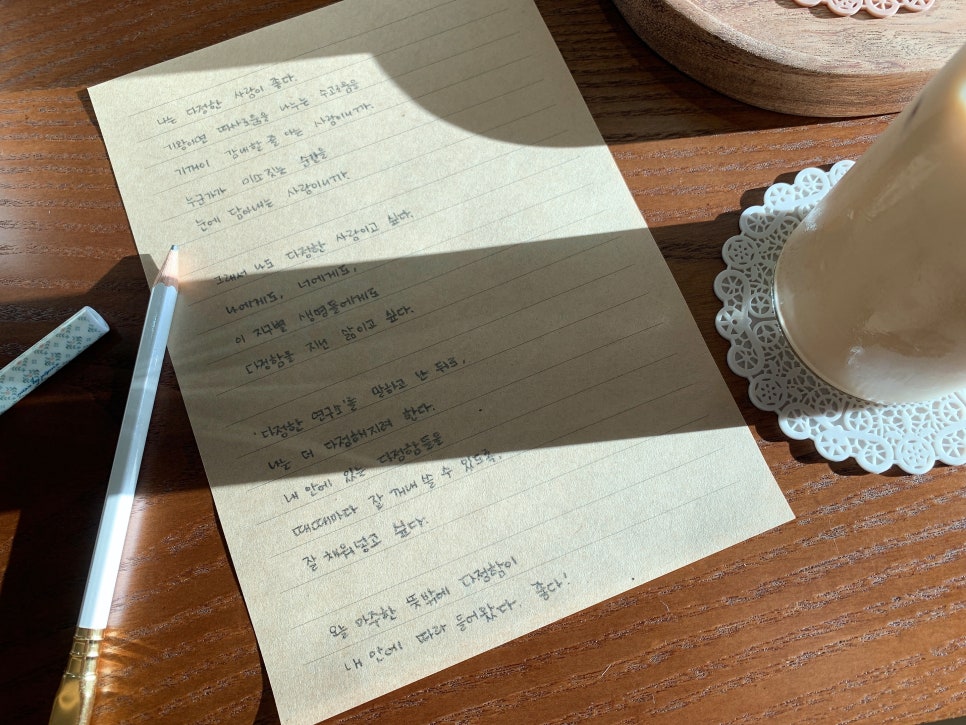 나는 다정한 사람이 좋다.
기왕이면 따사로움을 나누는 수고로움을
기꺼이 감내할 줄 아는 사람이니까.
누군가가 미쁘짓는 순간을
눈에 담아내는 사람이니까.
그래서 나도 다정한 사람이고 싶다.
나에게도, 너에게도,
이 지구별 생명들에게도
다정함을 지닌 삶이고 싶다.
'다정한 연구소'를 말하고 난 뒤로,
나는 더 다정해지려 한다.
내 안에 있는 다정함들을
때때마다 잘 꺼내 쓸 수 있도록,
잘 채워넣고 싶다.
오늘 마주한 뜻밖에 다정함이
내 안에 따라 들어왔다. 좋다!